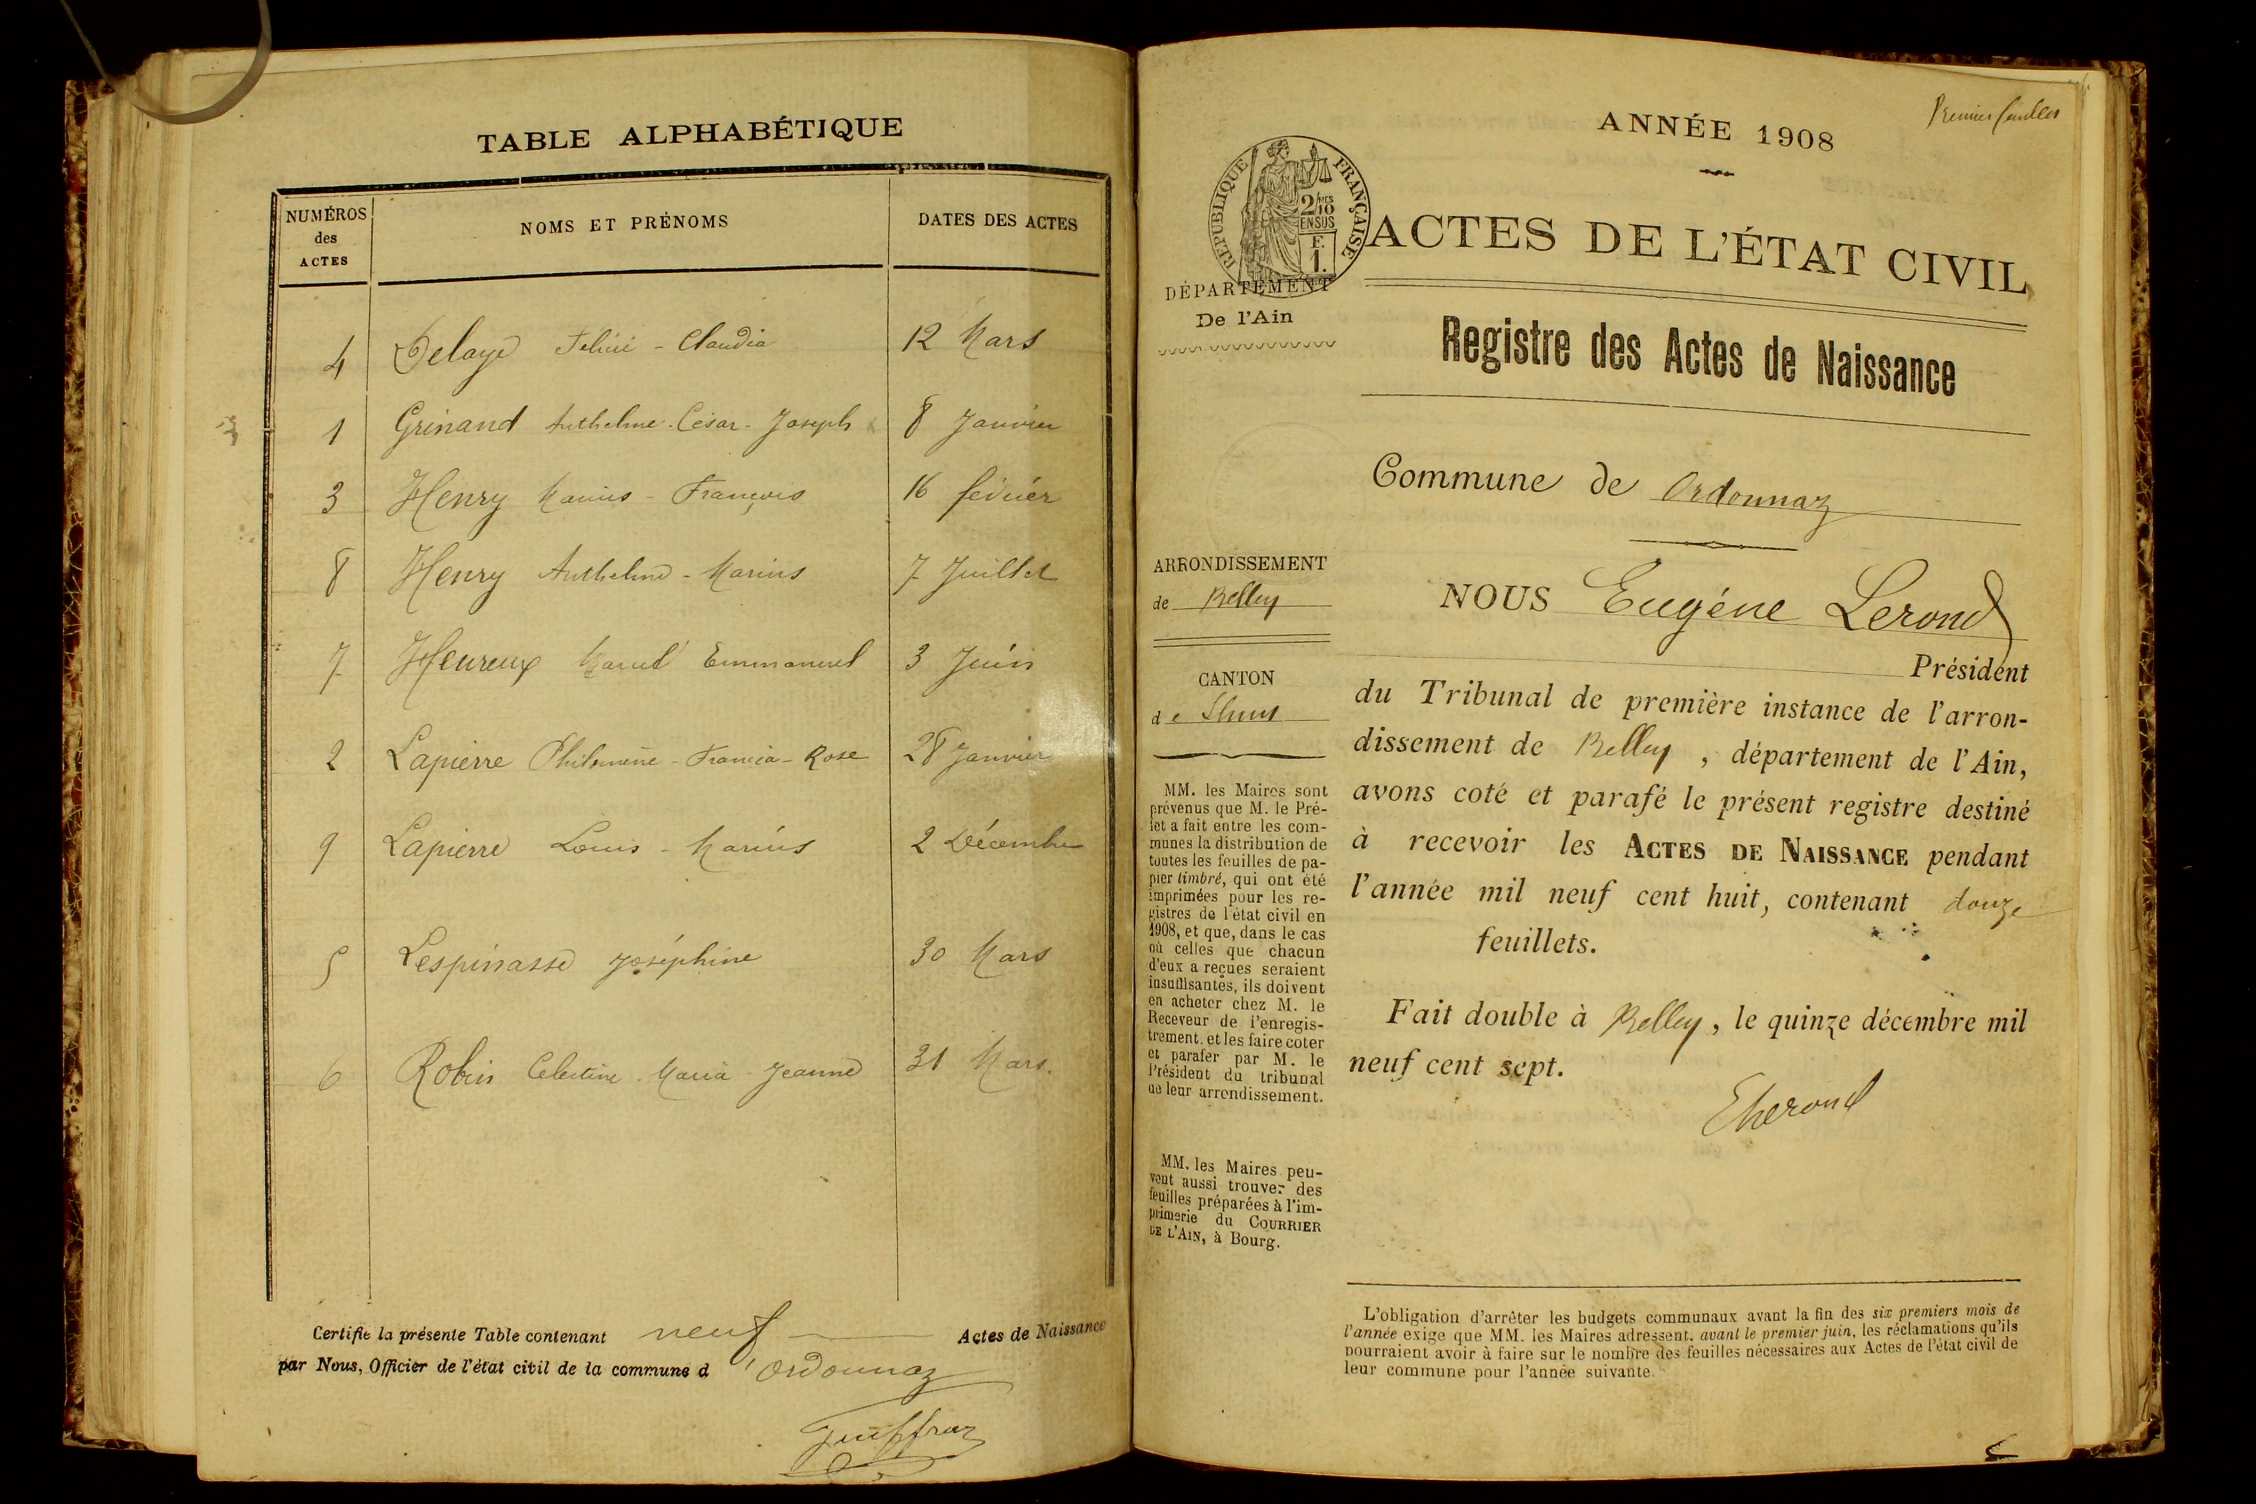 TABLE ALPHABÉTIQUE
NUMÉROS des ACTES
NOMS ET PRÉNOMS
DATES DES ACTES
4 Delaye Félicie - Claudia 12 Mars
1 Grinand Anthelme - César - Joseph 8 Janvier
3 Henry Marius - François 16 février
8 Henry Anthelme - Marius 7 Juillet
7 Heureux Marcel Emmanuel 3 Juin
2 Lapierre Philomène - Francia - Rose 28 Janvier
9 Lapierre Louis - Marius 2 Décembre
5 Lespinasse Joséphine 30 Mars
6 Robin Célestine - Maria - Jeanne 31 Mars.
Certifié la présente Table contenant neuf Actes de Naissance
par Nous, Officier de l'état civil de la commune d'Ordonnaz
Premier feuillet
ANNÉE 1908
RÉPUBLIQUE FRANÇAISE
2/10 EN SUS
F. 1.
ACTES DE L'ÉTAT CIVIL
DÉPARTEMENT
De l'Ain
Registre des Actes de Naissance
Commune de Ordonnaz
ARRONDISSEMENT
de Belley
CANTON
de Lhuis
MM. les Maires sont
prévenus que M. le Pré-
fet a fait entre les com-
munes la distribution de
toutes les feuilles de pa-
pier timbré, qui ont été
imprimées pour les re-
gistres de l'état civil en
1908, et que, dans le cas
où celles que chacun
d'eux a reçues seraient
insuffisantes, ils doivent
en acheter chez M. le
Receveur de l'enregis-
trement. et les faire coter
et parafer par M. le
Président du tribunal
de leur arrondissement.
MM. les Maires peu-
vent aussi trouver des
feuilles préparées à l'im-
primerie du COURRIER
DE L'AIN, à Bourg.
NOUS Eugéne Lerond
Président
du Tribunal de première instance de l'arron-
dissement de Belley, département de l'Ain,
avons coté et parafé le présent registre destiné
à recevoir les ACTES DE NAISSANCE pendant
l'année mil neuf cent huit, contenant douze
feuillets.
Fait double à Belley, le quinze décembre mil
neuf cent sept.
ELerond
L'obligation d'arrêter les budgets communaux avant la fin des six premiers mois de
l'année exige que MM. les Maires adressent, avant le premier juin, les réclamations qu'ils
pourraient avoir à faire sur le nombre des feuilles nécessaires aux Actes de l'état civil de
leur commune pour l'année suivante.